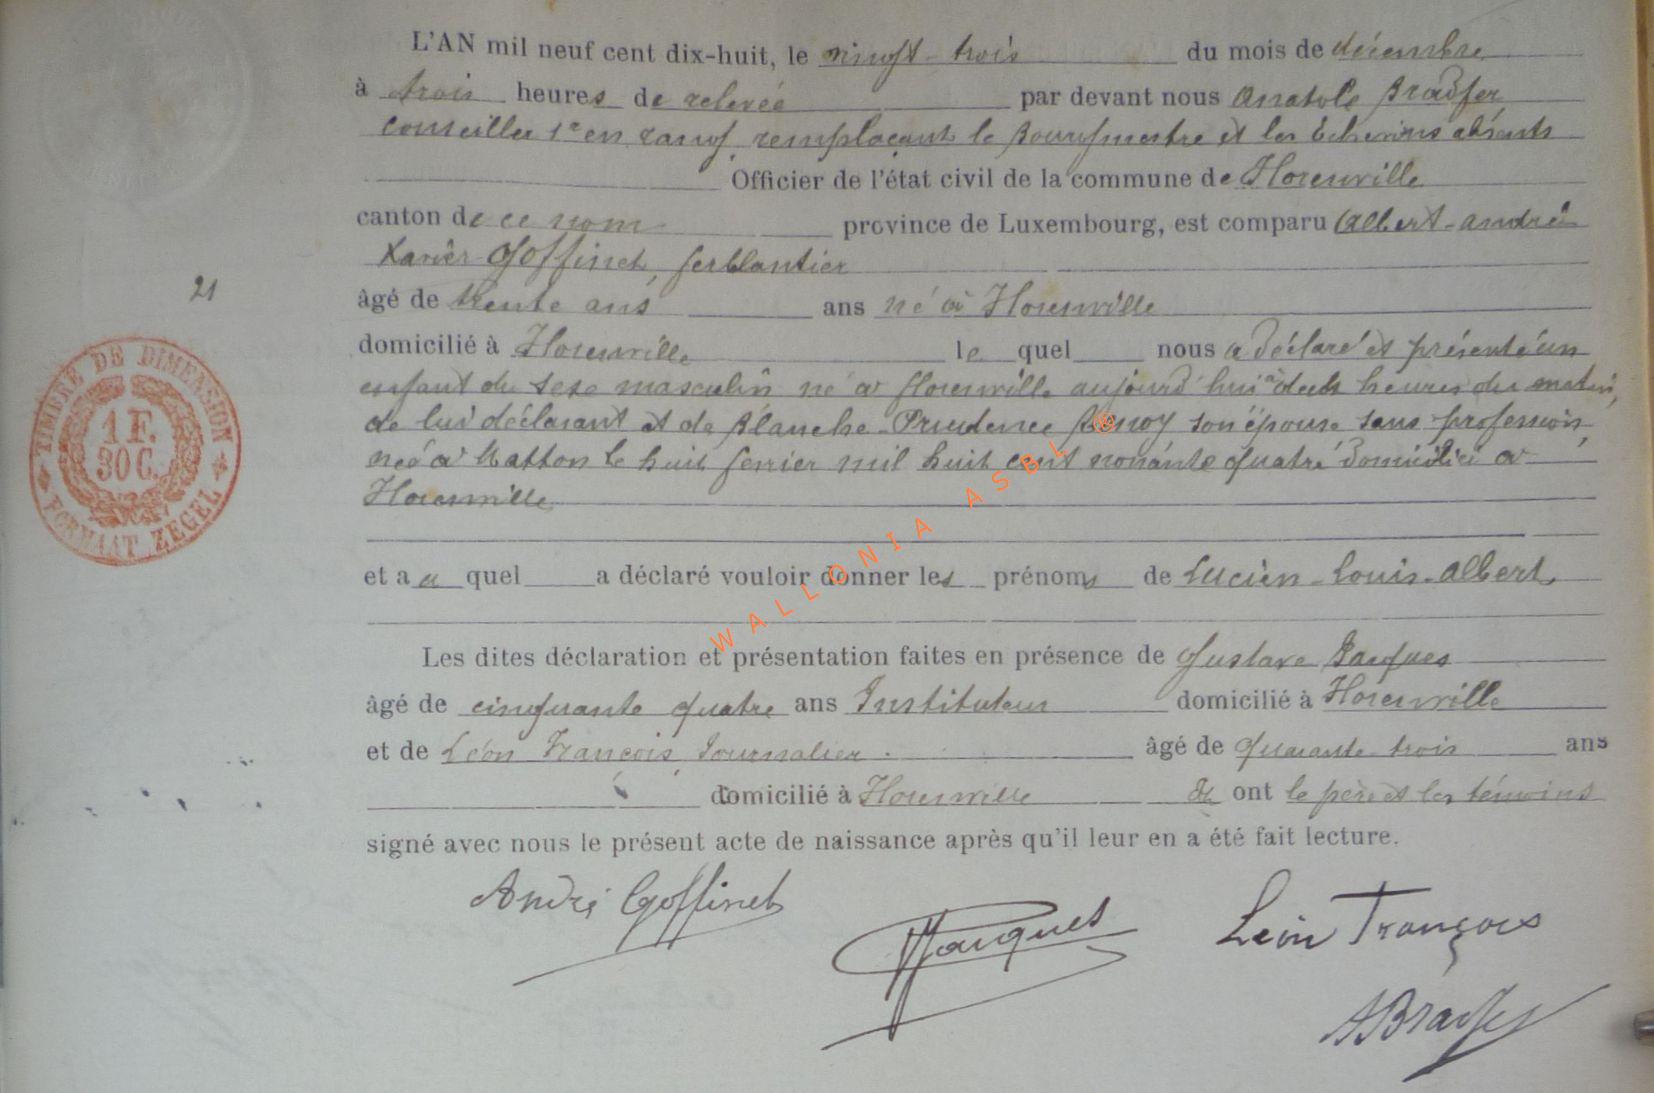 L'AN mil neuf cent dix-huit, le vingt-trois du mois de décembre
à trois heures de relevée par devant nous Anatole Bradfer
Conseiller 1er en rang, remplaçant le Bourgmestre et les Echevins absents
Officier de l'état civil de la commune de Florenville
canton de ce nom province de Luxembourg, est comparu Albert-André
Xavier Goffinet, ferblantier
âgé de trente ans ans né à Florenville
21
domicilié à Florenville le quel nous a déclaré et présenté un
enfant du sexe masculin né à Florenville aujourd'hui à deux heures du matin,
de lui déclarant et de Blanche-Prudence son épouse sans profession,
née à Matton le huit fevrier mil huit cent nonante quatre domicilié à
Florenville
et a u quel a déclaré vouloir donner les prénoms de Lucien-Louis-Albert
Les dites déclaration et présentation faites en présence de Gustave Jacques
âgé de cinquante quatre ans Instituteur domicilié à Florenville
et de Léon François, Journalier âgé de quarante trois ans
domicilié à Florenville & ont le père et les témoins
signé avec nous le présent acte de naissance après qu'il leur en a été fait lecture.
André Goffinet
Jacques
Léon François
ABradfer
TIMBRE DE DIMENSION
1 F.
30 C.
FORMAAT ZEGEL
WALLONIA ASBL ©